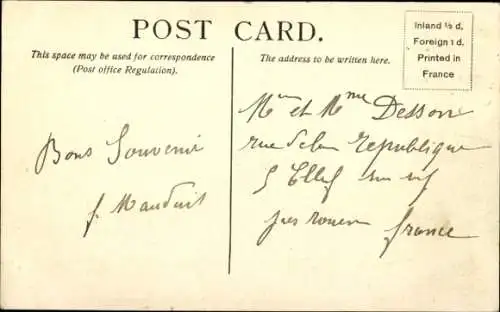 POST CARD.
Inland ½ d.
Foreign 1 d.
Printed in
France
This space may be used for correspondence
(Post office Regulation).
The address to be written here.
Bons Souvenir
f. Mauduit
Mr et Mme Desson
rue de la republique
sur
pres rouen france